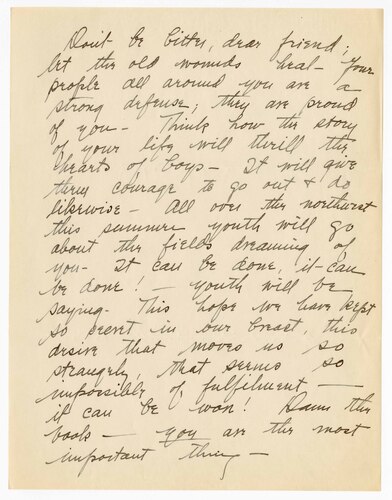 Don't be bitter, dear friend;
let the old wounds heal - Your
people all around you are a
strong defense; they are proud
of you - Think how the story
of your life will thrill the
hearts of boys - It will give
them courage to go out & do
likewise - All over the northwest
this summer youth will go
about the fields dreaming of
you - It can be done, it can
be done! - youth will be
saying - This hope we have kept
so secret in our breast, this
desire that moves us so
strangely, that seems so
impossible of fulfilment -
it can be won! Damn the
book - you are the most
important thing -